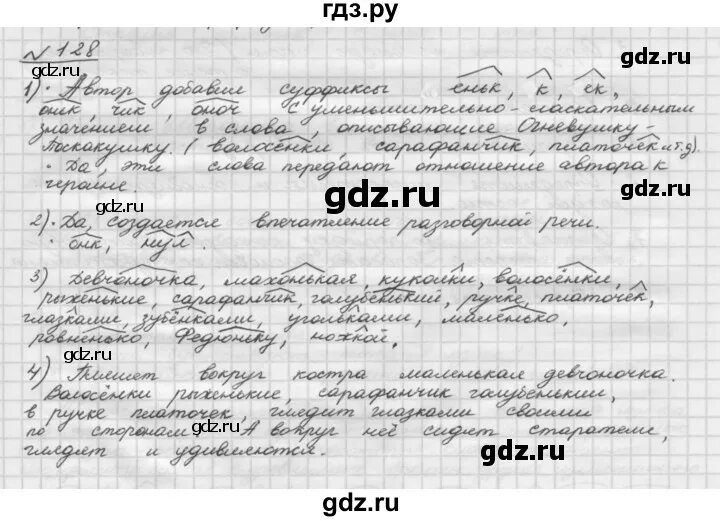 гдз.ру
gdz.ru
gdz.ru
№ 128
1)· Автор добавил суффиксы еньк, к, ек,
оньк, чик, оноч с уменьшительно-ласкательным
значением в слова, описывающие Огневушку-
Поскакушку. (волосёнки, сарафанчик, платочек и т.д).
· Да, эти слова передают отношение автора к
героине.
gdz.ru
gdz.ru
2)· Да, создается впечатление разговорной речи.
· онк, нул.
gdz.ru
3) Девчоночка, махонькая, куколки, волосёнки,
рыженькие, сарафанчик, голубенький, ручке, платочек,
глазками, зубёнками, угольками, маленько,
gdz.ru
gdz.ru
равненько, Федюньку, ножкой.
4) Пляшет вокруг костра маленькая девчоночка.
gdz.ru
Волосёнки рыженькие, сарафанчик голубенький,
в ручке платочек, глядит глазками своими
по сторонам. А вокруг неё сидят старатели,
gdz.ru
gdz.ru
глядят и удивляются.
gdz.ru